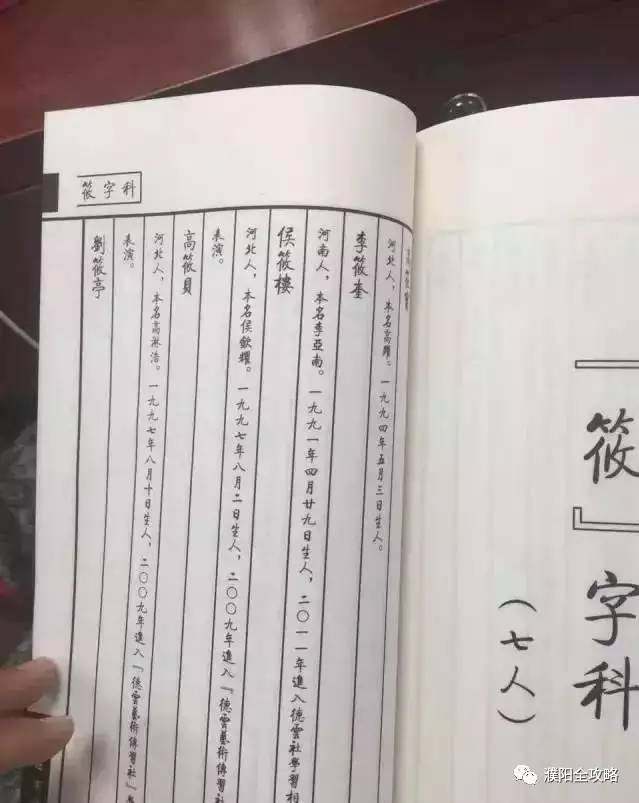 『筱』字科
（七人）
筱字科
高筱
河北人，本名高。一九九四年五月三日生人。
李筱奎
河南人，本名李亞南。一九九一年四月廿九日生人，二〇一一年進入德雲社學習相
侯筱樓
河北人，本名侯歆耀。一九九七年八月二日生人，二〇〇九年進入『德雲藝術傳習社
表演。
高筱貝
河北人，本名高淋浩。一九九七年八月十日生人，二〇〇九年進入『德雲藝術傳習社』
表演。
劉筱亭
濮阳全攻略